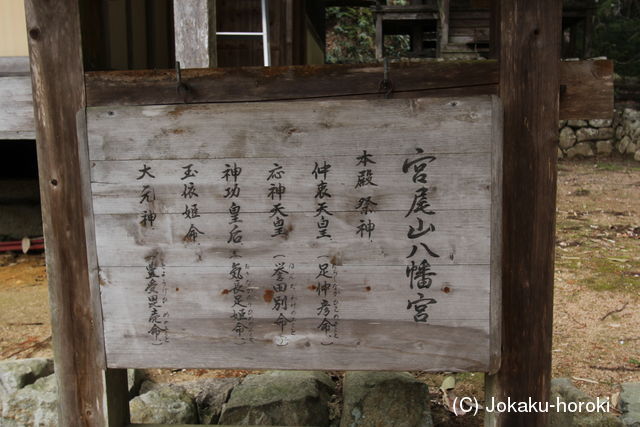 宮尾山八幡宮
本殿祭神
仲哀天皇（足仲彦命）
応神天皇（誉田別命）
神功皇后（気長足姫命）
玉依姫命
大元神（豊受毘売命）
(C) Jokaku-horoki